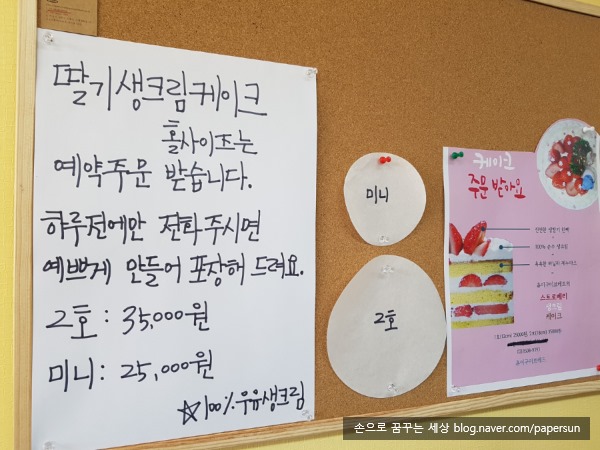 딸기생크림케이크
홀사이즈는
예약주문 받습니다.
하루전에만 전화주시면
예쁘게 만들어 포장해 드려요.
2호 : 35,000원
미니 : 25,000원
☆100% 우유생크림
미니
2호
케이크
주문 받아요
100% 우유 생크림
스트로베리
생크림
케이크
손으로 꿈꾸는 세상 blog.naver.com/papersun